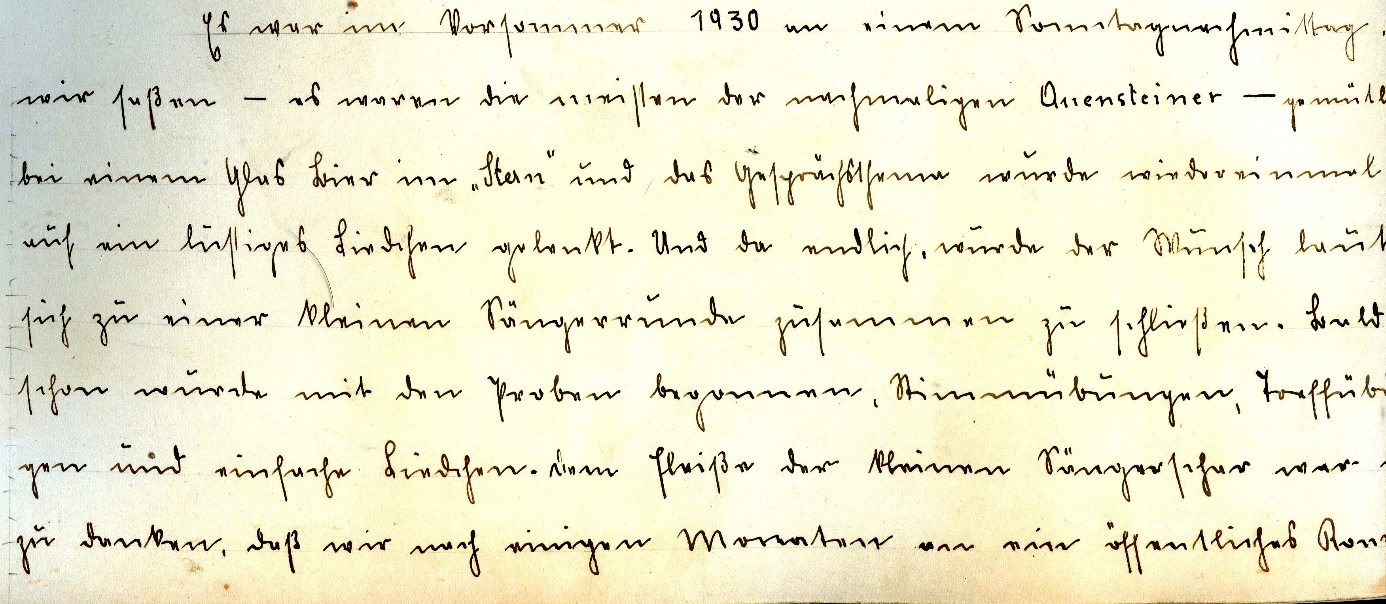 Es war im Vorsommer 1930 an einem Sonntagnachmittag.
wir saßen – es waren die meisten der nachmaligen Auensteiner – gemütl
bei einem Glas Bier im „Stern" und das Gesprächsthema wurde wiedereinmal
auf ein lustiges Liedchen gelenkt. Und da endlich, wurde der Wunsch laut
sich zu einer kleinen Sängerrunde zusammen zu schließen. Bald
schon wurde mit den Proben begonnen, Stimmübungen, Treffübu
gen und einfache Liedchen. Dem Fleiße der kleinen Sängerschar war
zu danken, daß wir nach einigen Monaten an ein öffentliches Kon